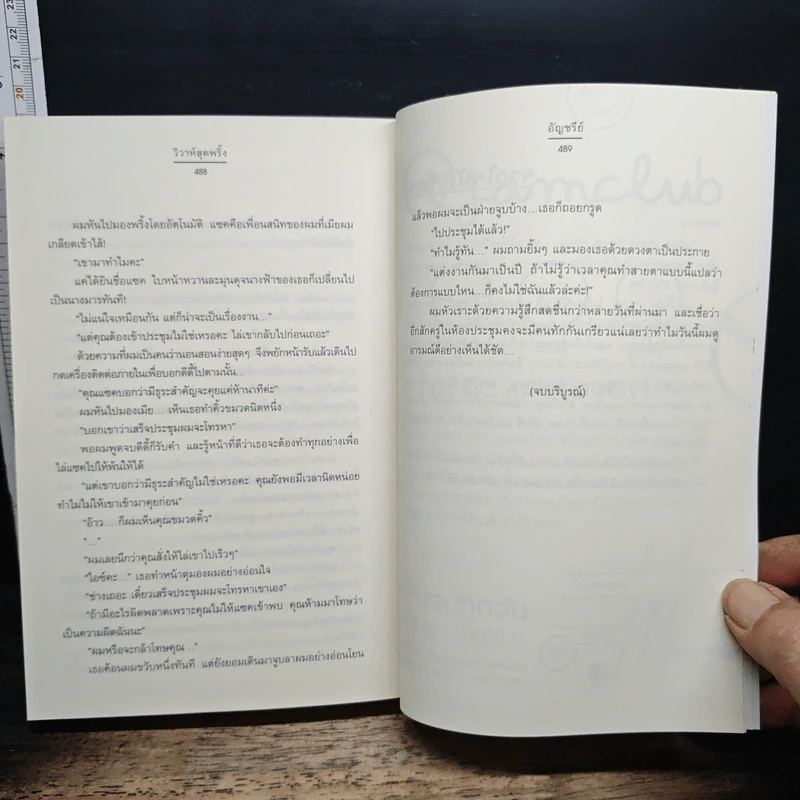 วิวาห์สุดพริ้ง
488
ผมหันไปมองพริ้งโดยอัตโนมัติ แซคคือเพื่อนสนิทของผมที่เมียผม
เกลียดเข้าไส้!
"เขามาทำไมคะ"
แค่ได้ยินชื่อแซค ใบหน้าหวานละมุนดุจนางฟ้าของเธอก็เปลี่ยนไป
เป็นนางมารทันที!
"ไม่แน่ใจเหมือนกัน แต่ก็น่าจะเป็นเรื่องงาน…"
"แต่คุณต้องเข้าประชุมไม่ใช่เหรอคะ ไล่เขากลับไปก่อนเถอะ"
ด้วยความที่ผมเป็นคนว่านอนสอนง่ายสุดๆ จึงพยักหน้ารับแล้วเดินไป
กดเครื่องติดต่อภายในเพื่อบอกดีดี้ไปตามนั้น…
"คุณแซคบอกว่ามีธุระสำคัญจะคุยแค่ห้านาทีค่ะ"
ผมหันไปมองเมีย… เห็นเธอทำคิ้วขมวดนิดหนึ่ง
"บอกเขาว่าเสร็จประชุมผมจะโทรหา"
พอผมพูดจบดีดี้ก็รับคำ และรู้หน้าที่ดีว่าเธอจะต้องทำทุกอย่างเพื่อ
ไล่แซคไปให้พ้นให้ได้
"แต่เขาบอกว่ามีธุระสำคัญไม่ใช่เหรอคะ คุณยังพอมีเวลานิดหน่อย
ทำไมไม่ให้เขาเข้ามาคุยก่อน"
"อ้าว… ก็ผมเห็นคุณขมวดคิ้ว"
"…"
"ผมเลยนึกว่าคุณสั่งให้ไล่เขาไปเร็วๆ"
"ไอซ์คะ…" เธอทำหน้าดุมองผมอย่างอ่อนใจ
"ช่างเถอะ เดี๋ยวเสร็จประชุมผมจะโทรหาเขาเอง"
"ถ้ามีอะไรผิดพลาดเพราะคุณไม่ให้แซคเข้าพบ คุณห้ามมาโทษว่า
เป็นความผิดฉันนะ"
"ผมหรือจะกล้าโทษคุณ…"
เธอค้อนผมขวับหนึ่งทันที แต่ยังยอมเดินมาจูบลาผมอย่างอ่อนโยน
อัญชรีย์
489
แล้วพอผมจะเป็นฝ่ายจูบบ้าง…เธอก็ถอยกรูด
"ไปประชุมได้แล้ว!"
"ทำไมรู้ทัน…" ผมถามยิ้มๆ และมองเธอด้วยดวงตาเป็นประกาย
"แต่งงานกันมาเป็นปี ถ้าไม่รู้ว่าเวลาคุณทำสายตาแบบนี้แปลว่า
ต้องการแบบไหน…ก็คงไม่ใช่ฉันแล้วล่ะค่ะ!"
ผมหัวเราะด้วยความรู้สึกสดชื่นกว่าหลายวันที่ผ่านมา และเชื่อว่า
อีกสักครู่ในห้องประชุมคงจะมีคนทักกันเกรียวแน่เลยว่าทำไมวันนี้ผมดู
อารมณ์ดีอย่างเห็นได้ชัด…
(จบบริบูรณ์)
20